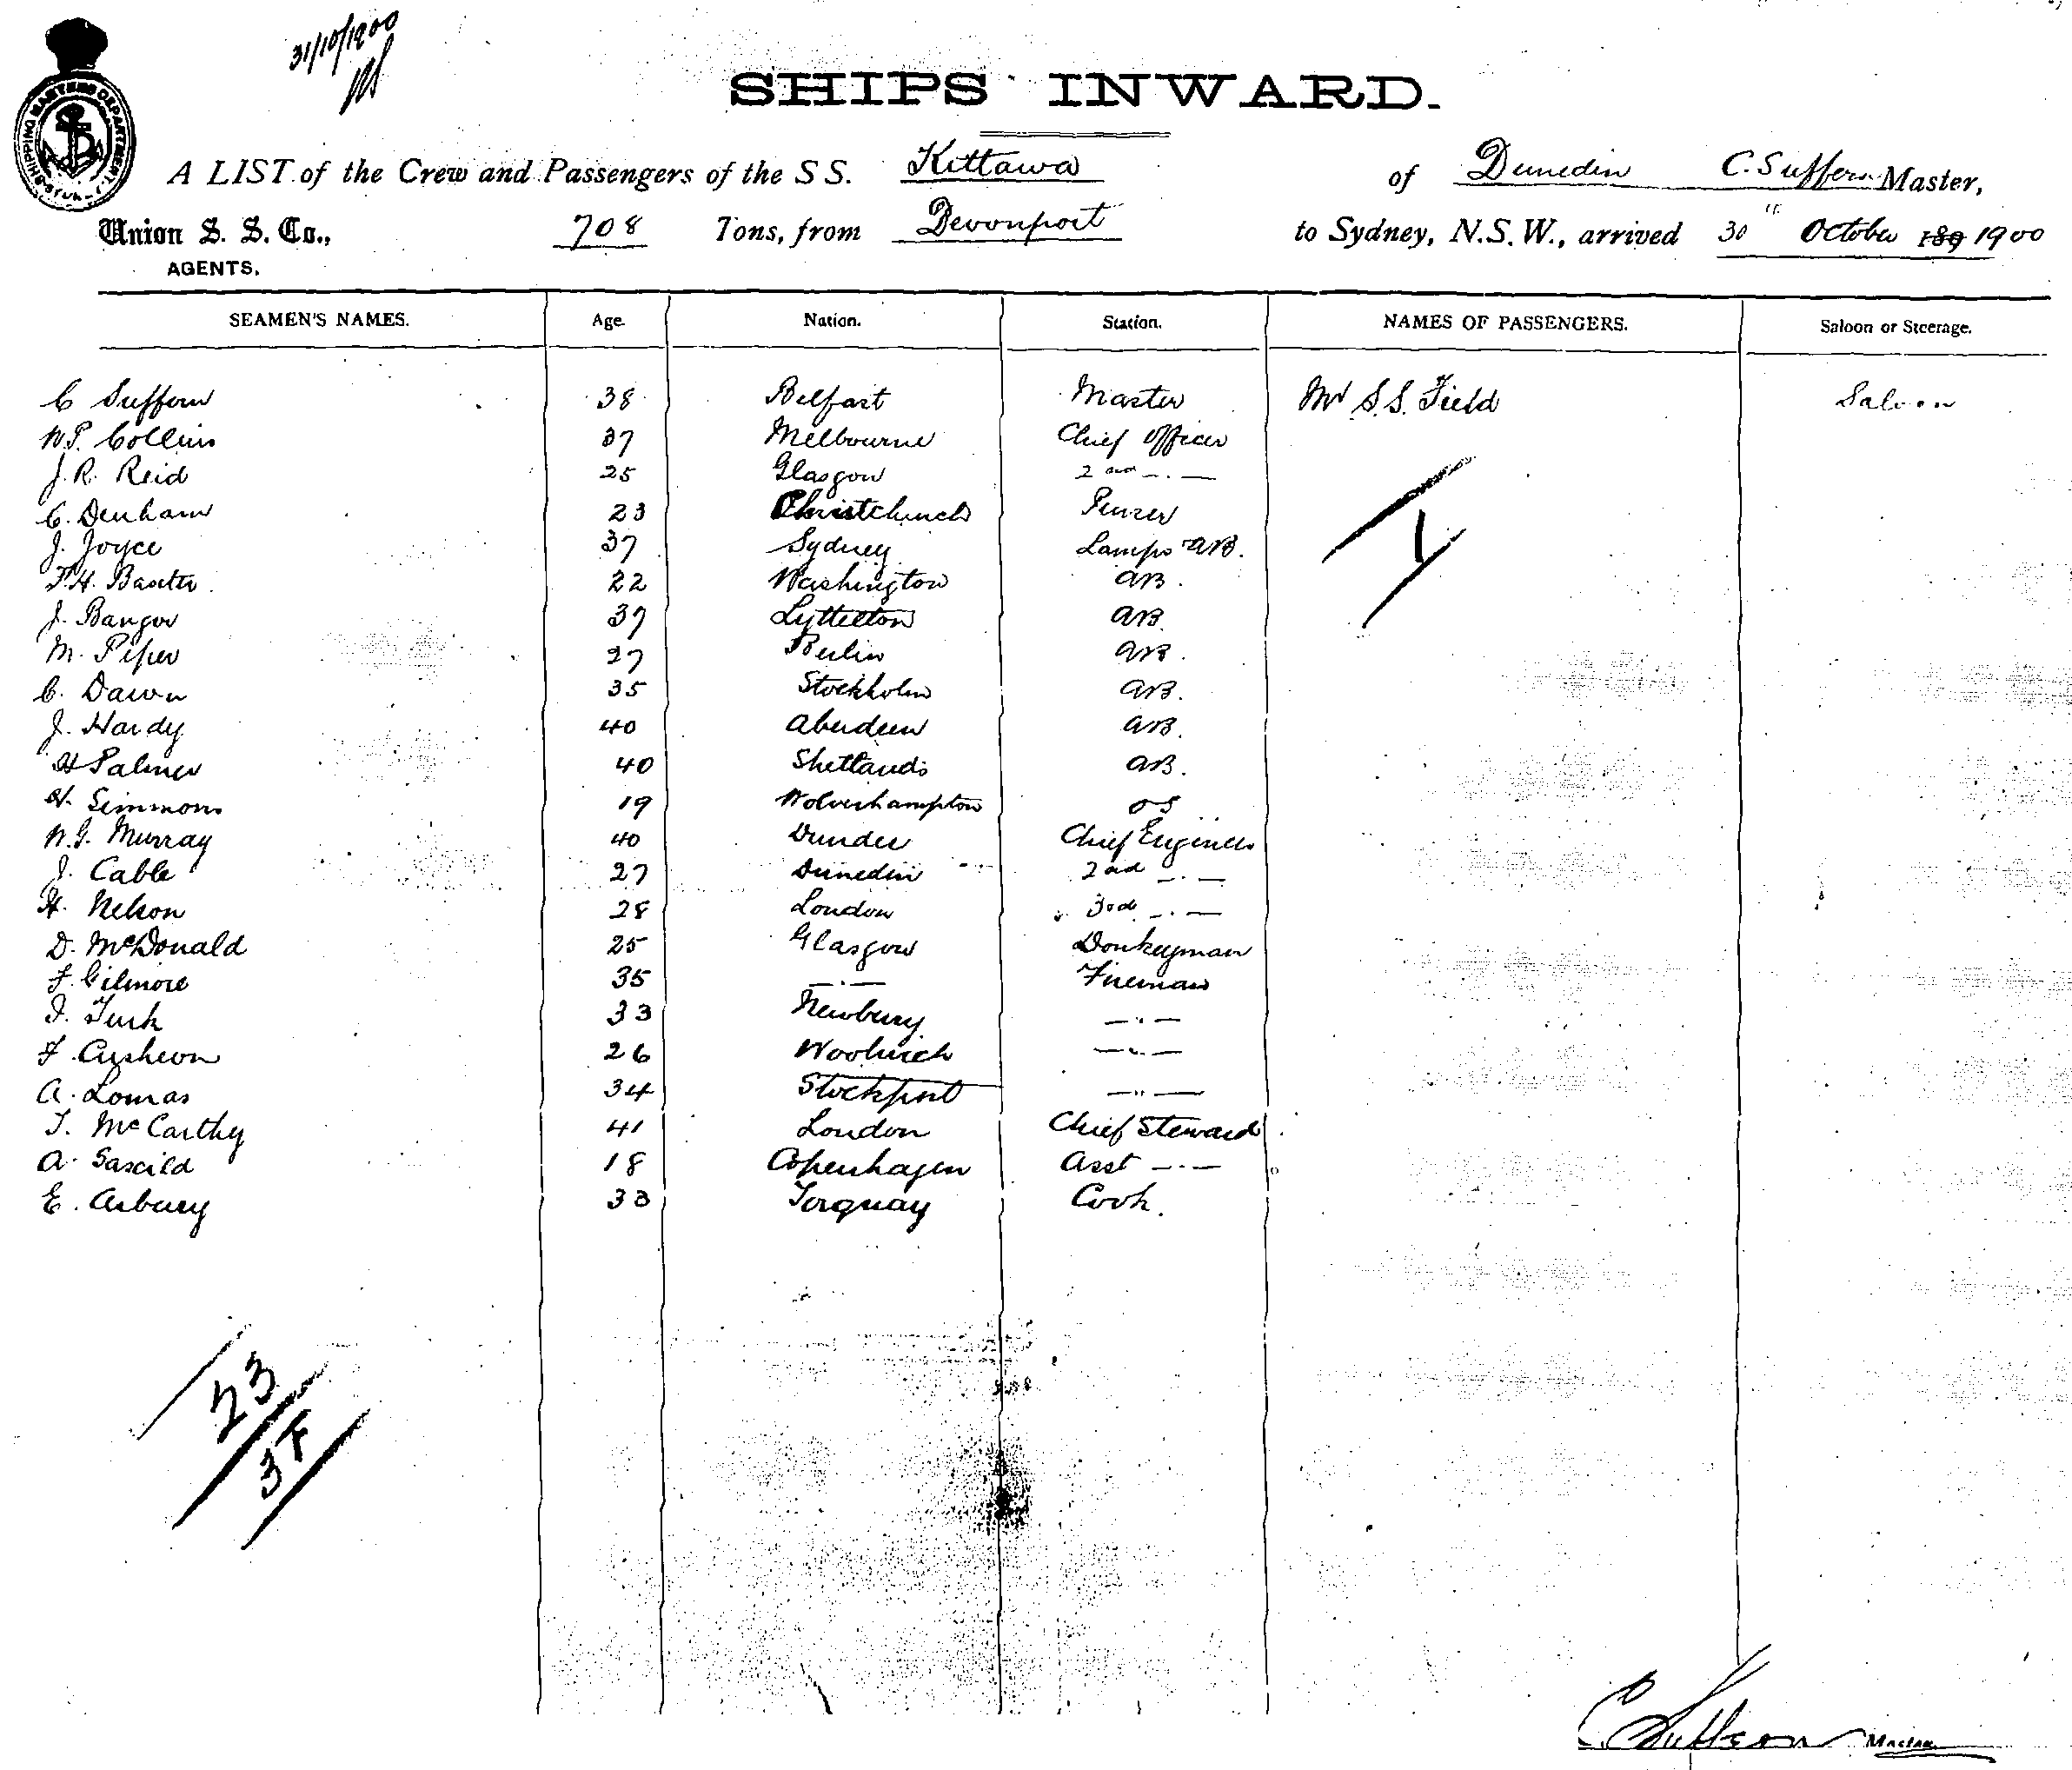 31/10/1900
SHIPPING MASTER'S DEPARTMENT
SHIPS INWARD.
A LIST of the Crew and Passengers of the S S. Kittawa of Dunedin C. Suffern Master,
Union S. S. Co., 708 Tons, from Devonport to Sydney, N.S.W., arrived 30th October 189 1900
AGENTS.
SEAMEN'S NAMES. Age. Nation. Station. NAMES OF PASSENGERS. Saloon or Steerage.
C Suffern 38 Belfast Master Mr S.S. Field Saloon
W.P. Collins 37 Melbourne Chief Officer
J.R. Reid 25 Glasgow 2nd —.—
C. Denham 23 Christchurch Purser
J. Joyce 37 Sydney Lamps AB.
T.H. Baxter 22 Washington AB.
J. Bangor 37 Lyttelton AB.
M. Piper 27 Berlin AB.
C. Dawn 35 Stockholm AB.
J. Hardy 40 Aberdeen AB.
H Palmer 40 Shetlands AB.
H. Simmons 19 Wolverhampton OS
W.G. Murray 40 Dundee Chief Engineer
J. Cable 27 Dunedin 2nd —.—
H. Nelson 28 London 3rd —.—
D. McDonald 25 Glasgow Donkeyman
F. Gilmore 35 —.— Fireman
I. Turk 33 Newbury —"—
F. Cusheon 26 Woolwich —"—
A. Lomas 34 Stockport —"—
T. McCarthy 41 London Chief Steward
A. Saxild 18 Copenhagen Asst —.—
E. Asbury 33 Torquay Cook.
1
23
C Suffern Master